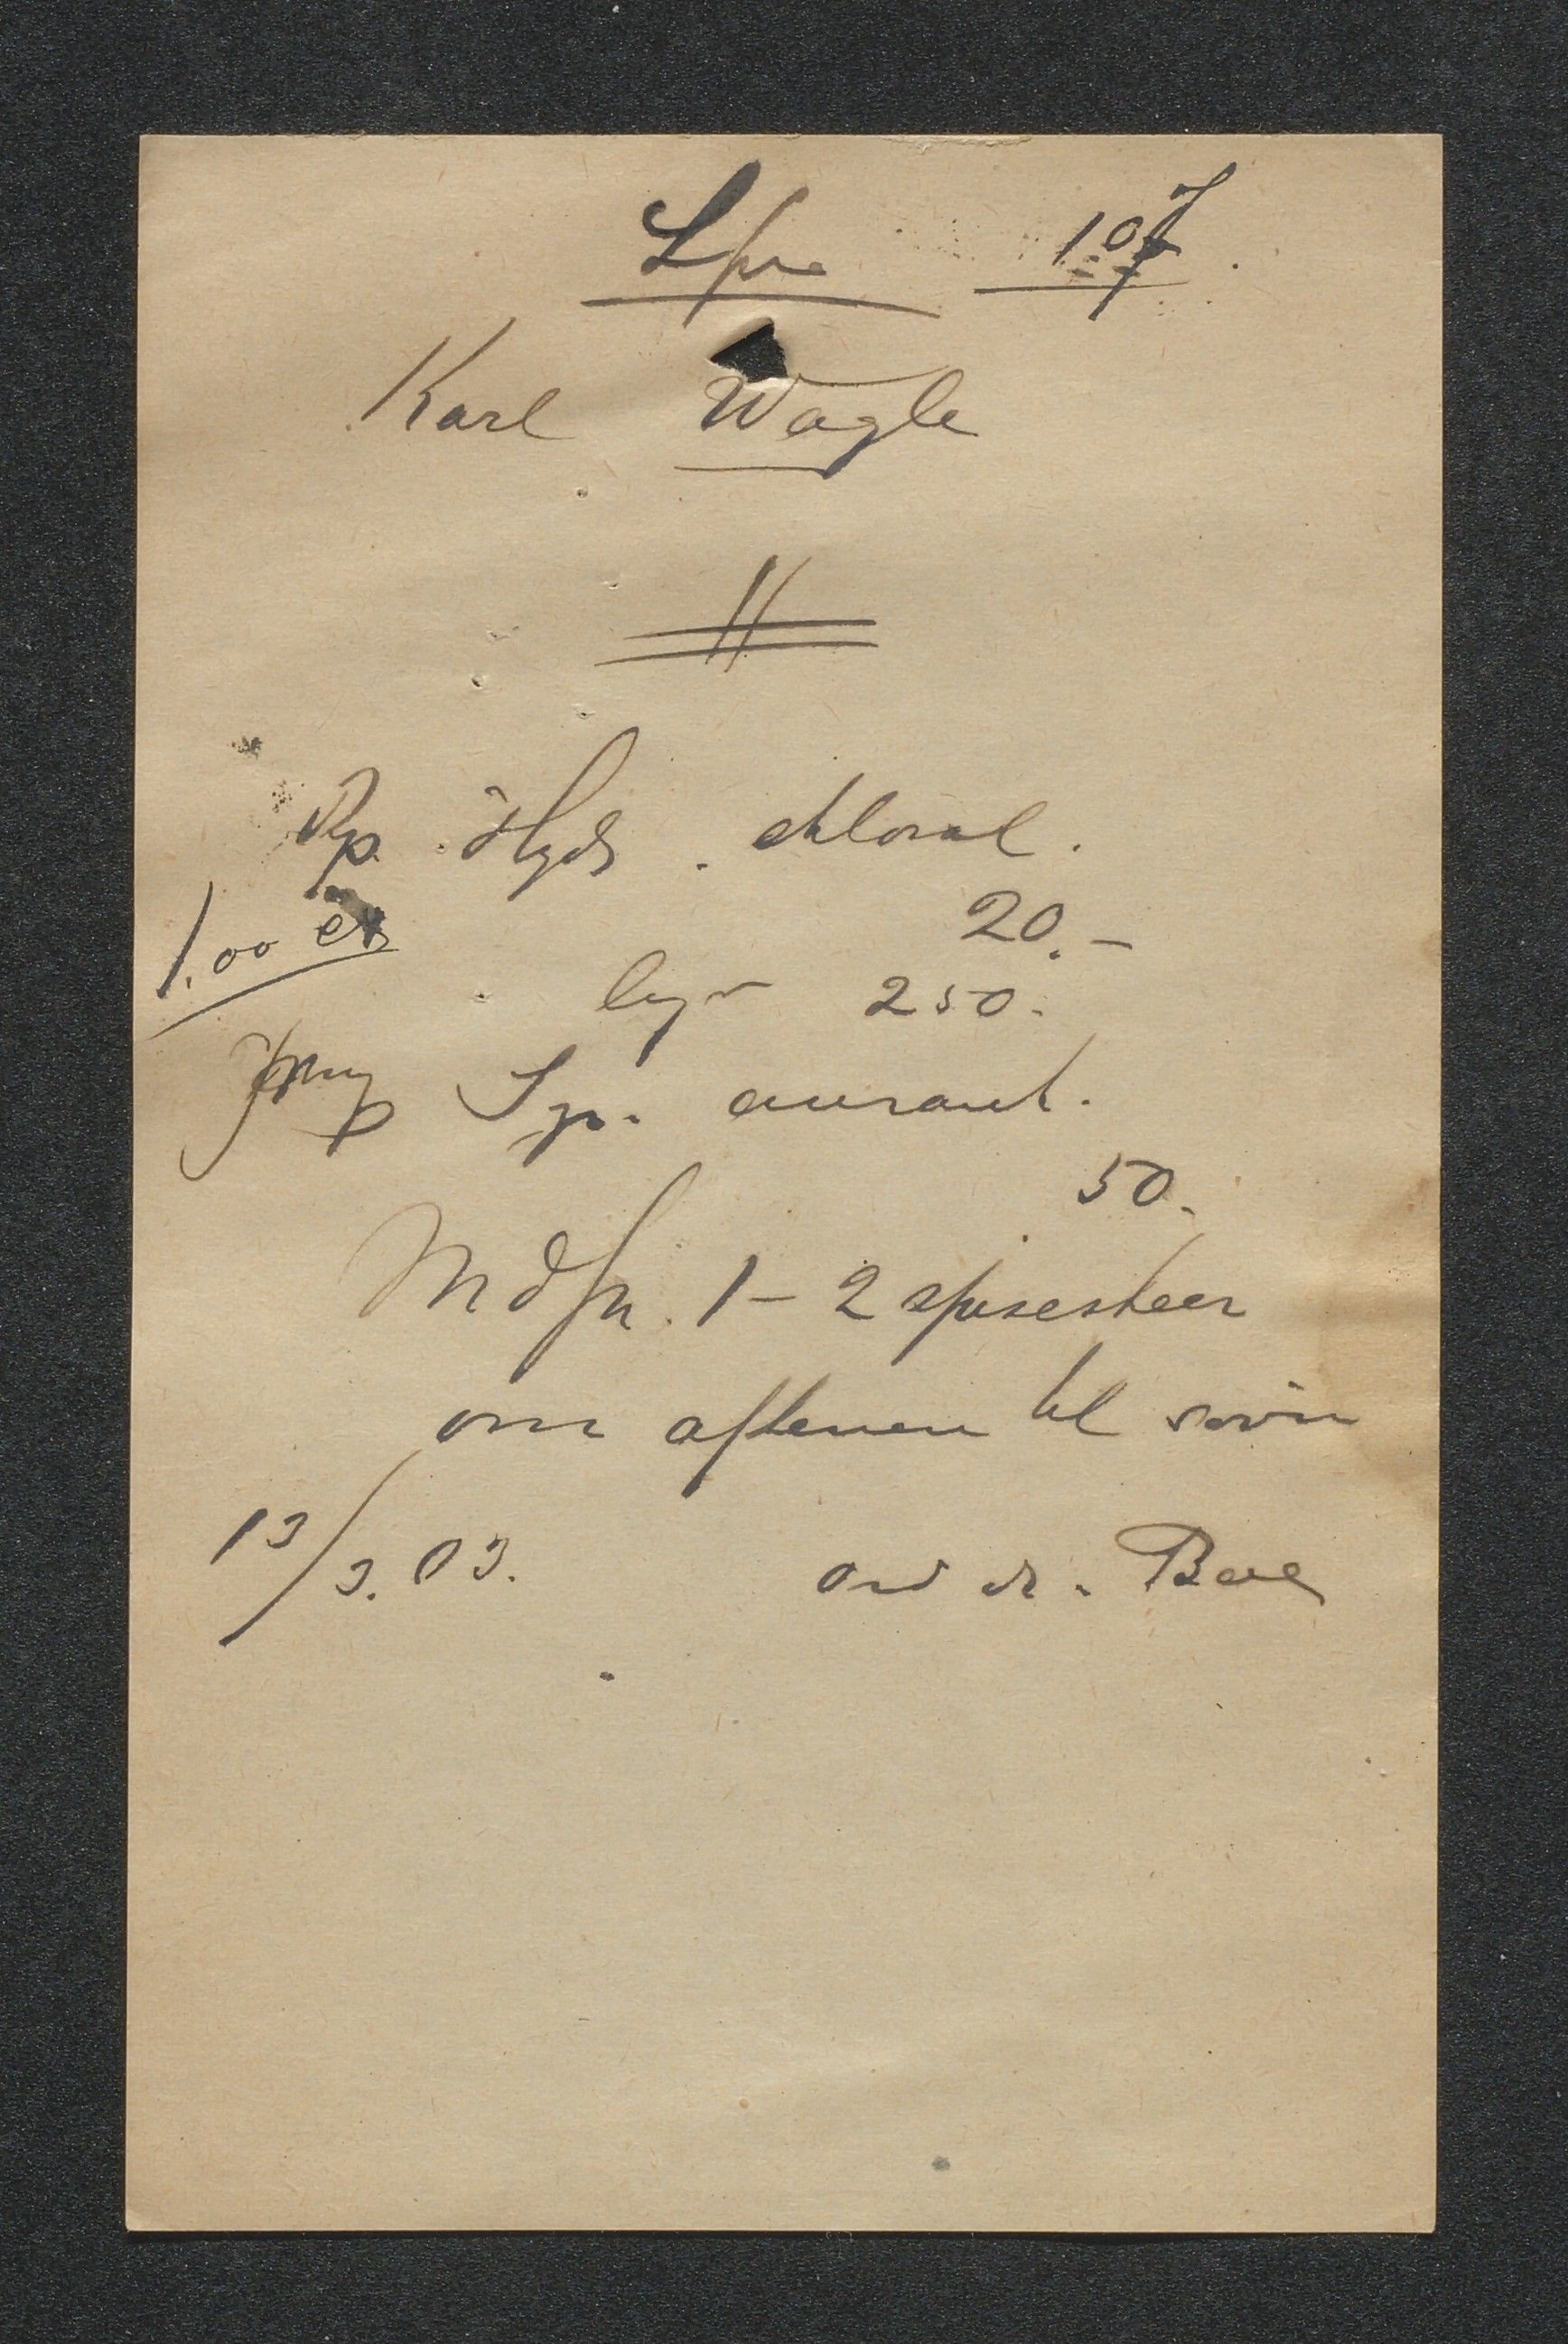 107
Karl Wagle
Rp. Hydr. chloral.
20.-
1.00
250.
Syr. aurant.
50.
MdS. 1-2 spiseskeer
om aftenen til søvn
13/3.03.
ord dr.